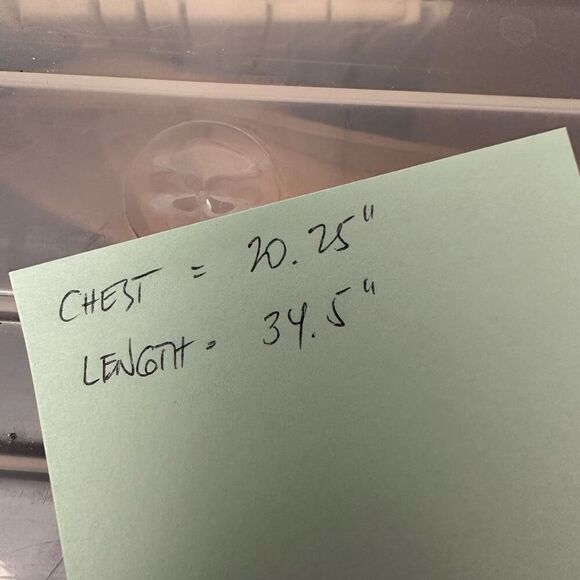 CHEST = 20.25"
LENGTH = 34.5"